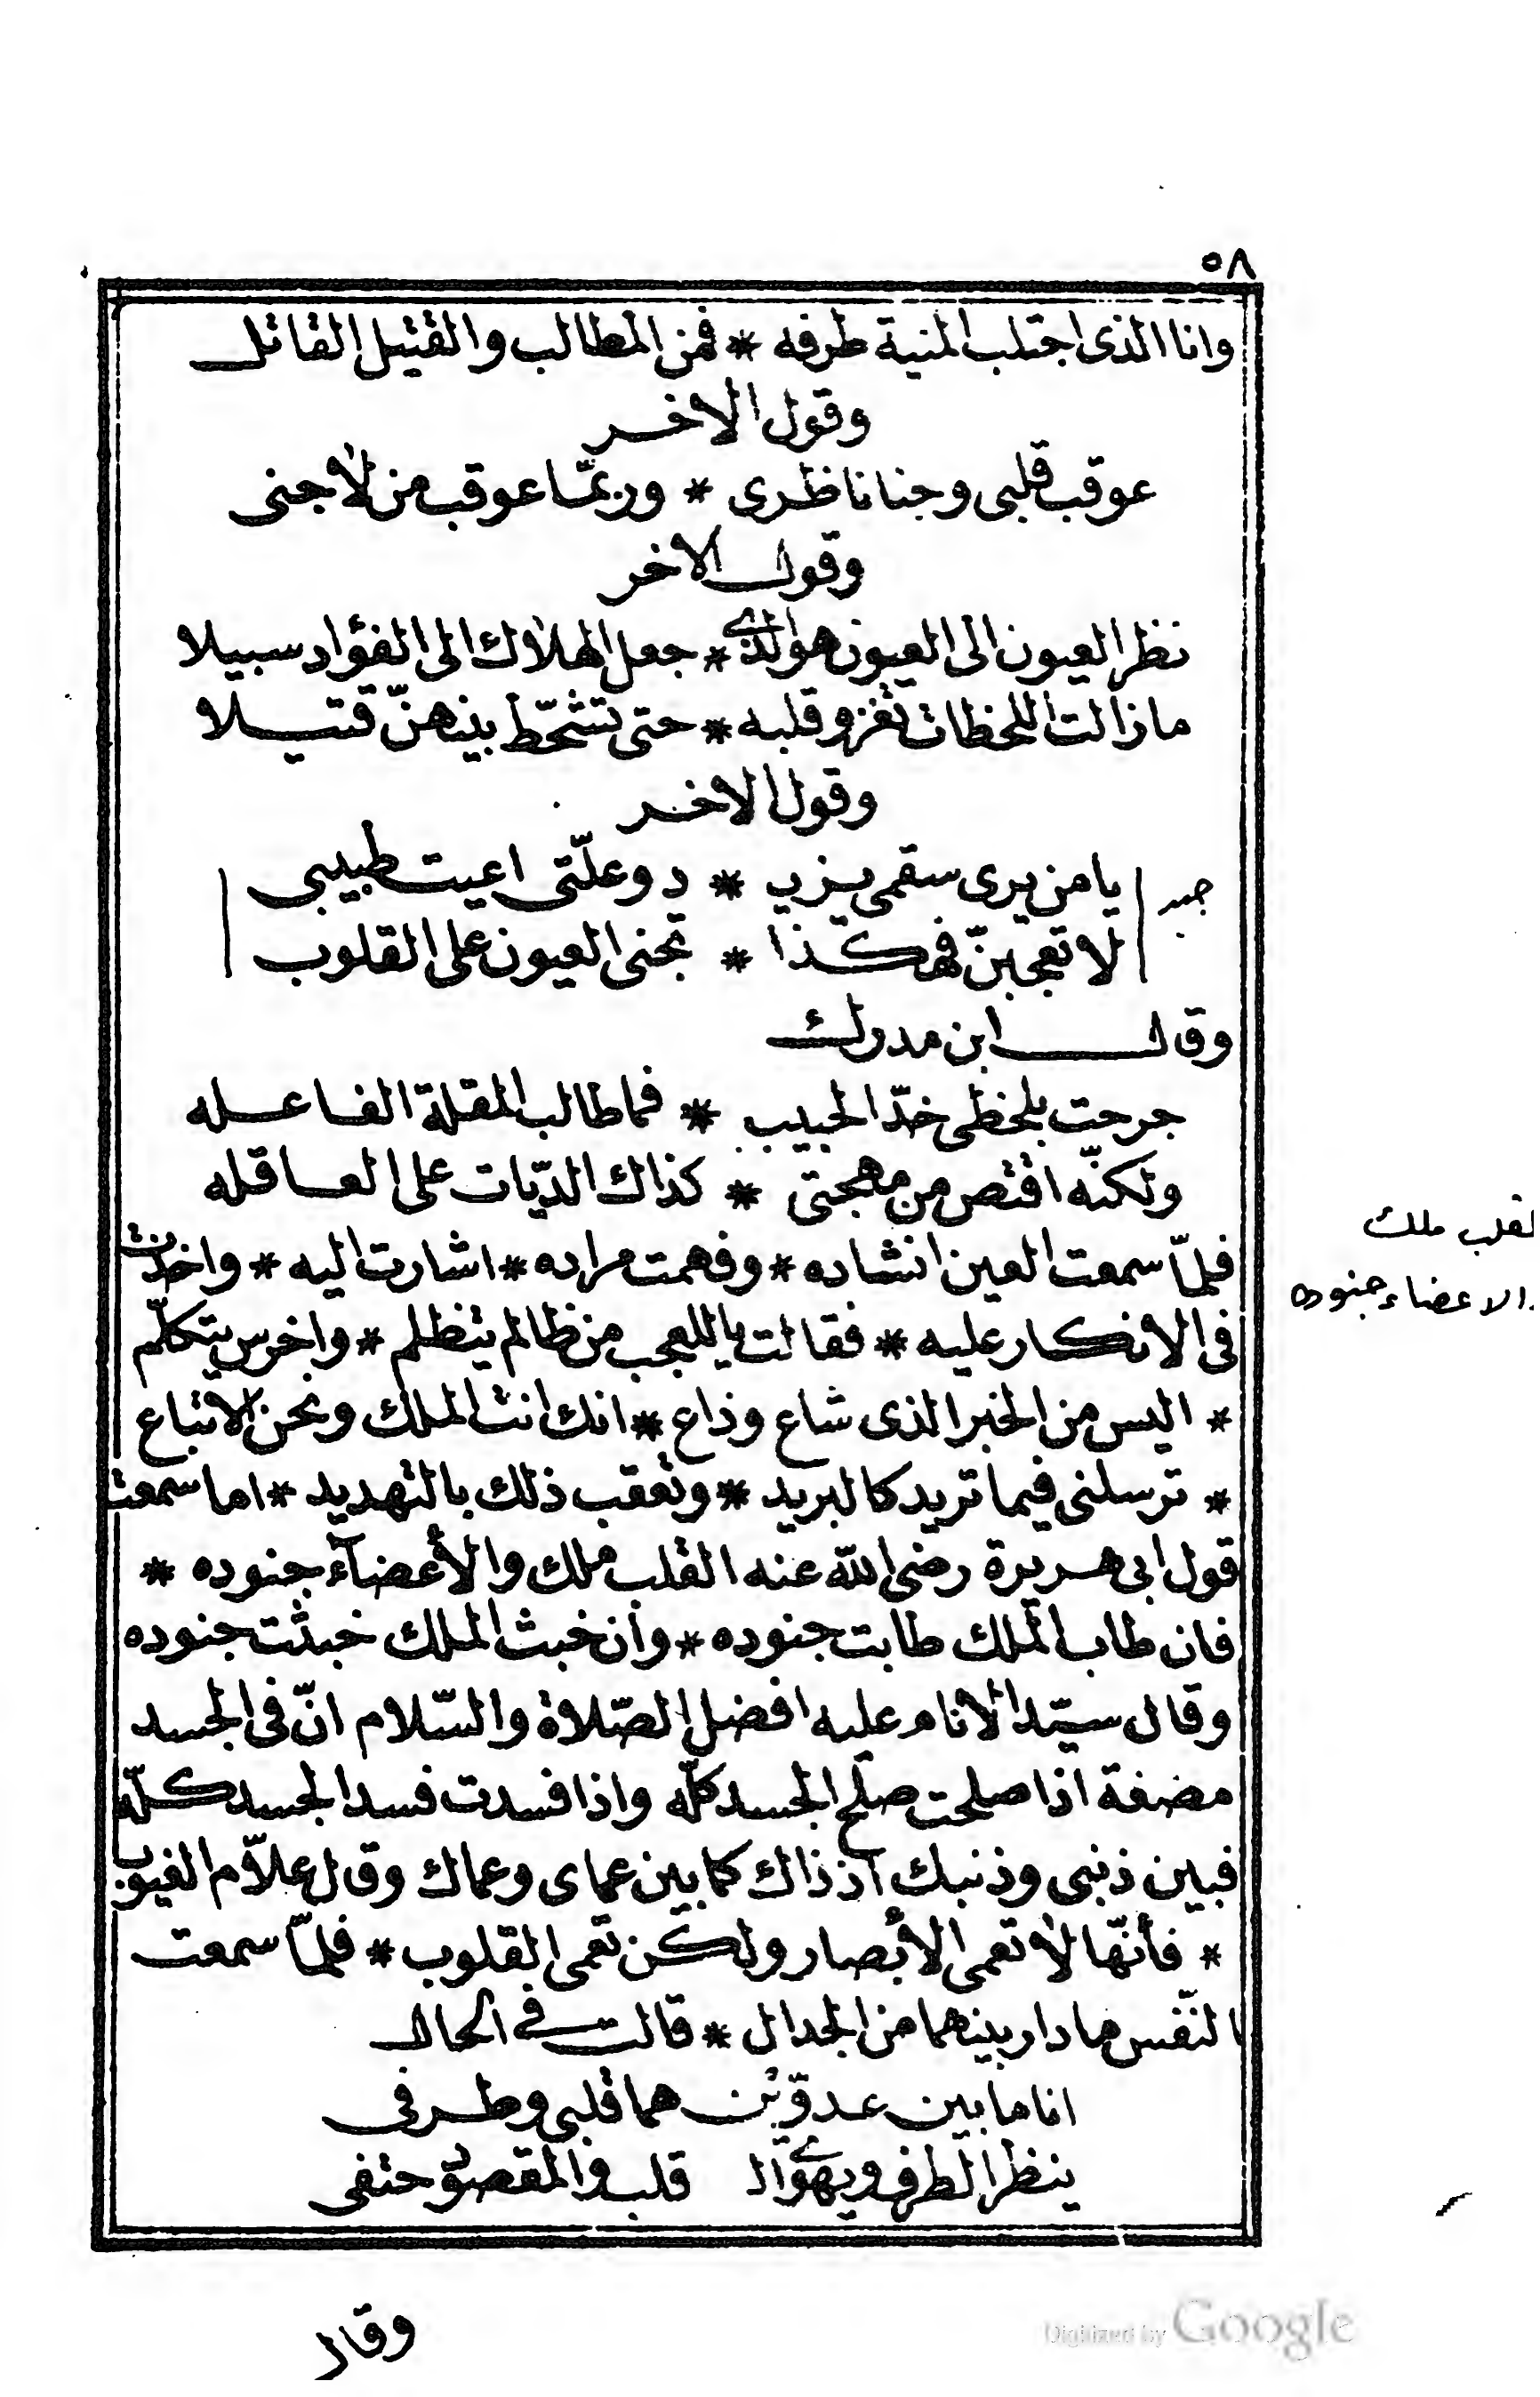 ٥٨
وانا الذى اجتلب المنية طرفه * فمن المطالب والقتيل القاتل
وقول الاخر
عوقب قلبى وجنا ناظرى * وربمّا عوقب من لا جنى
وقول الاخر
نظر العيون الى العيون هو الذى * جعل الهلاك الى الفؤاد سبيلا
ما زالت اللحظات تغزو قلبه * حتى تشحّط بينهنّ قتيلا
وقول الاخر
يا من يرى سقمى يزيد * وعلّتى اعيت طبيبى
لا تعجبنّ فهكذا * تجنى العيون على القلوب
وقال ابن مدرك
جرحت بلحظى خدّ الحبيب * فما طالب المقلة الفاعله
ولكنّه اقتص من مهجتى * كذاك الديّات على العاقله
فلمّا سمعت العين انشاده * وفهمت مراده * اشارت اليه * واخذت
فى الانكار عليه * فقالت ياللعجب من ظالم يتظلم * واخرس يتكلّم
* اليس من الخبر الذى شاع وذاع * انك انت الملك ونحن الاتباع
* ترسلنى فيما تريد كالبريد * وتعقب ذلك بالتهديد * اما سمعت
قول ابى هريرة رضى الله عنه القلب ملك والأعضآء جنوده *
فان طاب الملك طابت جنوده * وان خبث الملك خبثت جنوده
وقال سيّد الأنام عليه افضل الصّلاة والسّلام انّ فى الجسد
مضغة اذا صلحت صلح الجسد كلّه واذا فسدت فسد الجسد كلّه
فبين ذنبى وذنبك اذ ذاك كما بين عماى وعماك وقال علاّم الغيوب
* فأنّها لا تعمى الأبصار ولكن تعمى القلوب * فلمّا سمعت
النّفس ما دار بينهما من الجدال * قالت فى الحال
انا ما بين عدوّين هما قلبى وطرفى
ينظر الطرف ويهوى ال قلب والمقصود حتفى
وقال
جيد
القلب ملك
والاعضاء جنوده
Digitized by Google